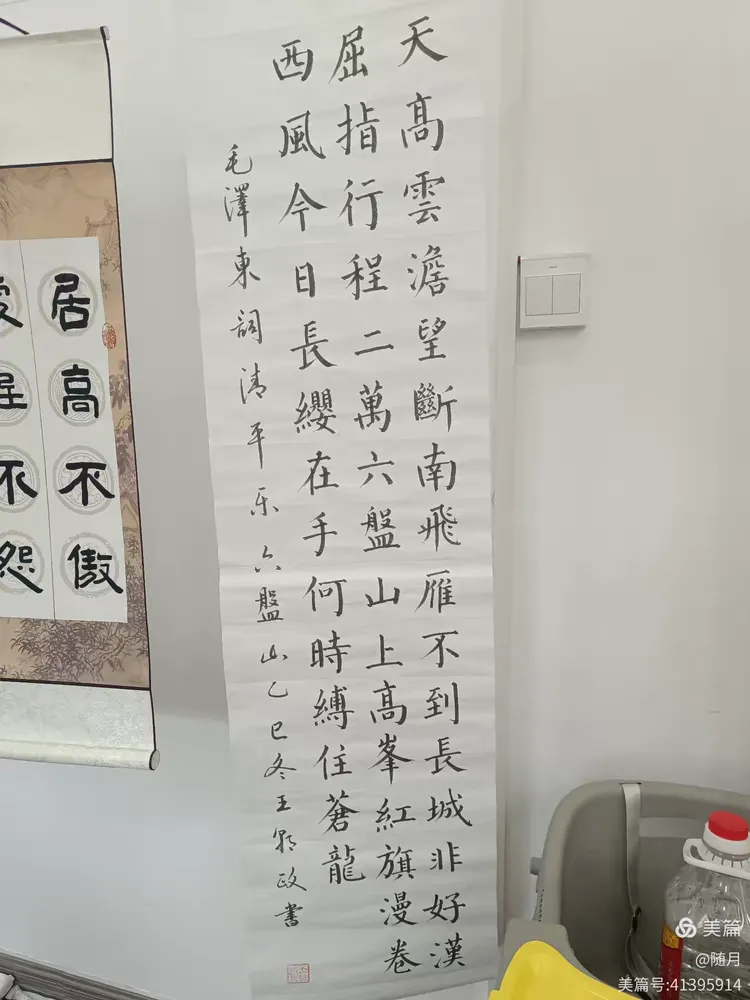 天高雲澹望斷南飛雁不到長城非好漢
屈指行程二萬六盤山上高峯紅旗漫卷
西風今日長纓在手何時縛住蒼龍
毛澤東詞清平乐六盤山乙巳冬王 政書
居高不傲
不怨
美篇
@随月
美篇号:41395914